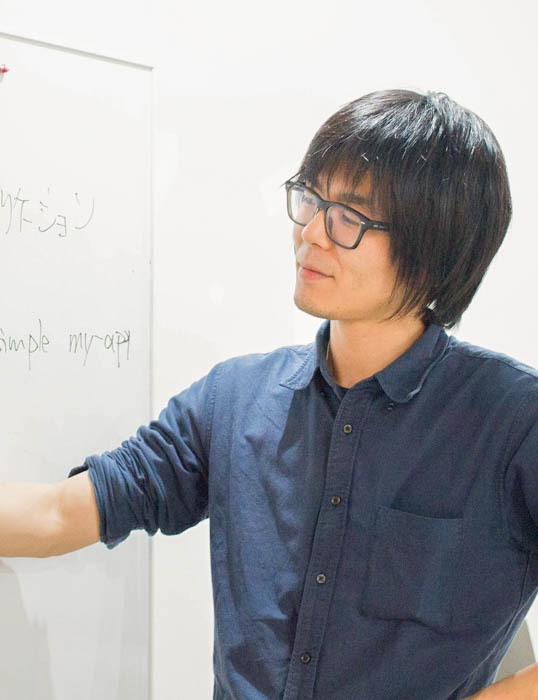 ケーション
simple my-app